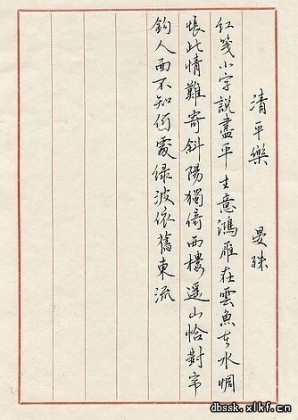 清平樂 晏殊
红笺小字說盡平生意鴻雁在雲魚在水惆
悵此情難寄斜陽獨倚西樓遥山恰對帘
鈎人面不知何處绿波依舊東流
dbssk.xlkf.cn